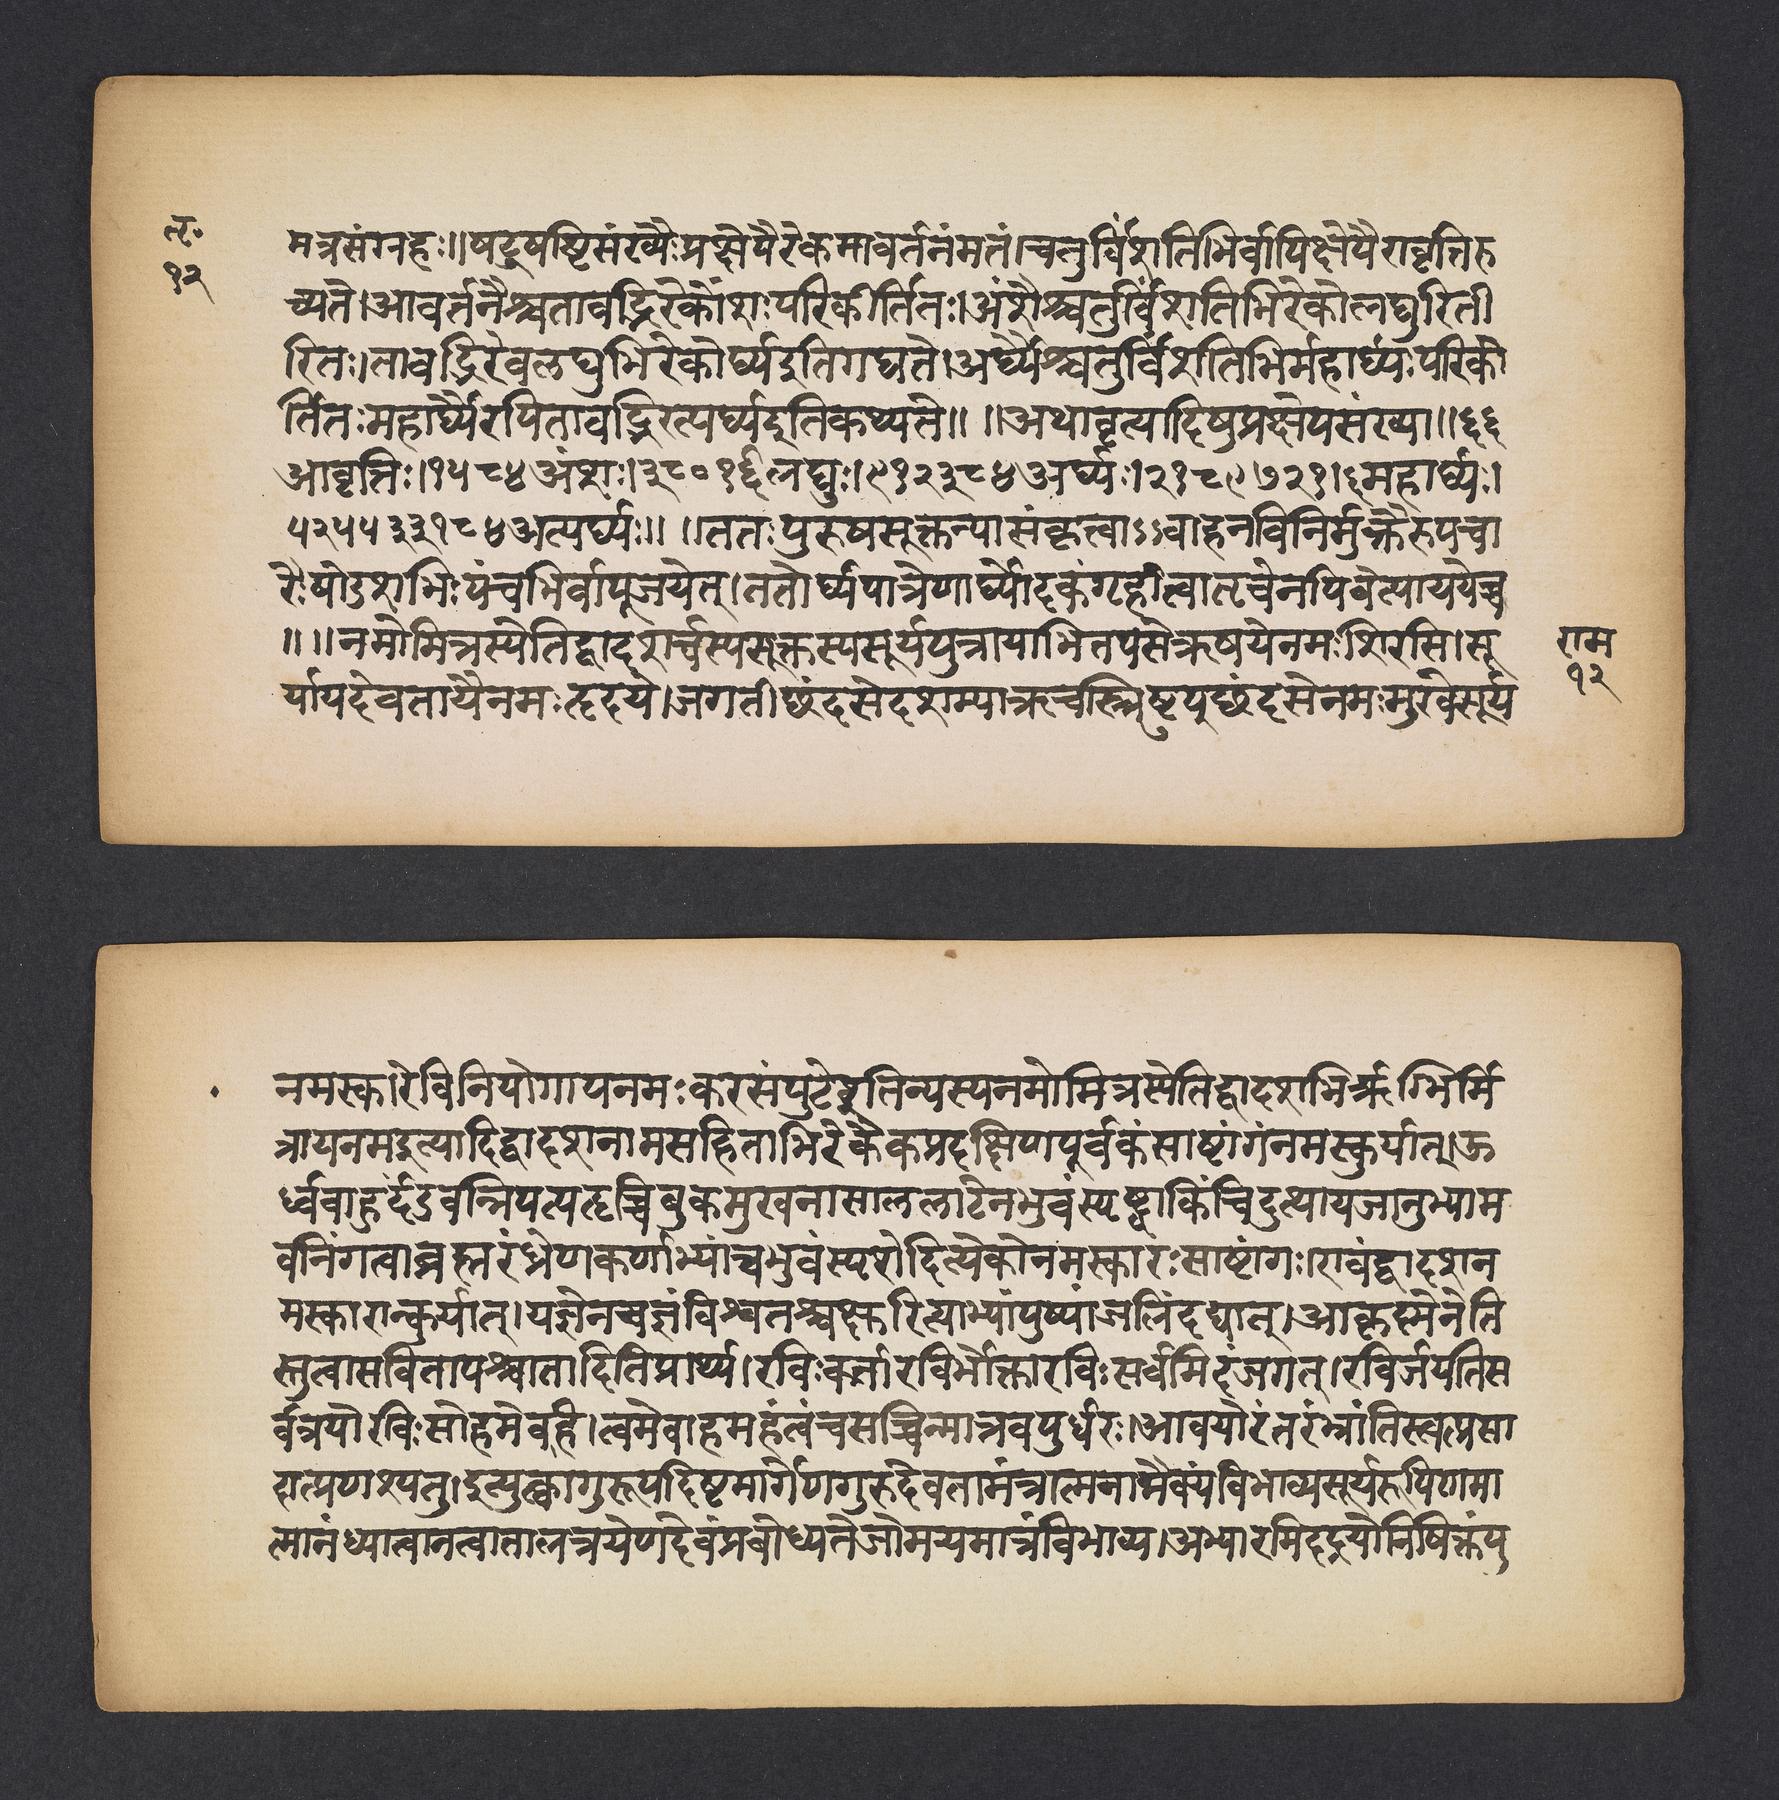 तृ॰
१२
मन्त्रसंग्रहः॥षट्षष्टिसंख्यैःप्रक्षेपैरेकमावर्तनंमतं।चतुर्विंशतिभिर्वापिक्षेपैरावृत्तिरु
च्यते।आवर्तनैश्चतावद्भिरेकोंशःपरिकीर्तितः।अंशैश्चतुर्विंशतिभिरेकोलघुरिती
रितः।तावद्भिरेवलघुभिरेकोर्घ्यइतिगद्यते।अर्घ्यैश्चतुर्विंशतिभिर्महार्घ्यःपरिकी
र्तितःमहार्घ्यैरपितावद्भिरत्यर्घ्यइतिकथ्यते॥ ॥अथावृत्यादिषुप्रक्षेपसंख्या॥६६
आवृत्तिः।१५८४अंशः।३८०१६लघुः।९१२३८४अर्घ्यः।२१८९७२१।६महार्घ्यः।
५२५५३३१८४अत्यर्घ्यः॥ ॥ततःपुरूषसूक्तन्यासंकृत्वाऽऽवाहनविनिर्मुक्तैरुपचा
रैःषोडशभिःपंचभिर्वापूजयेत्।ततोर्घ्यपात्रेणार्घ्योदकंगृहीत्वातृचेनपिबेत्पाययेच्च
॥ ॥नमोमित्रस्येतिद्वादशर्चस्यसूक्तस्यसूर्यपुत्रायाभितपसेऋषयेनमःशिरसि।सू
र्यायदेवतायैनमःहृदये।जगतीछंदसेदशम्याऋचस्त्रिष्टुप्छंदसेनमःमुखेसूर्य
राम
१२
नमस्कारेविनियोगायनमःकरसंपुटेइतिन्यस्यनमोमित्रस्येतिद्वादशभिर्ऋग्भिर्मि
त्रायनमइत्यादिद्वादशनामसहिताभिरेकैकप्रदक्षिणपूर्वकंसाष्टांगंनमस्कुर्यात्।ऊ
र्ध्वबाहुर्दंडवन्निपत्यहृच्चिबुकमुखनासाललाटेनभुवंस्पृष्ट्वाकिंचिदुत्थायजानुभ्याम
वनिंगत्वाब्रह्मरंध्रेणकर्णाभ्यांचभुवंस्पृशेदित्येकोनमस्कारःसाष्टांगः।एवंद्वादशन
मस्कारान्कुर्यात्।यज्ञेनयज्ञंविश्वतश्चक्षुरित्याभ्यांपुष्पांजलिंदद्यात्।आकृष्णेनेति
स्तुत्वासवितापश्चातादितिप्रार्थ्य।रविःकर्त्तारविर्भोक्तारविःसर्वमिदंजगत्।रविर्जयतिस
र्वत्रयोरविःसोहमेवहि।त्वमेवाहमहंत्वंचसच्चिन्मात्रवपुर्धरः।आवयोरंतरंभ्रांतिस्त्वत्प्रसा
दात्प्रणश्यतु।इत्युत्क्वागुरूपदिष्टमार्गेणगुरुदेवतामंत्रात्मनामैक्यंविभाव्यसूर्यरूपिणमा
त्मानंध्यात्वानत्वातालत्रयेणदेवंप्रबोध्यतेजोमयमात्रंविभाव्य।अभ्यारमिदद्रयोनिषिक्तंपु